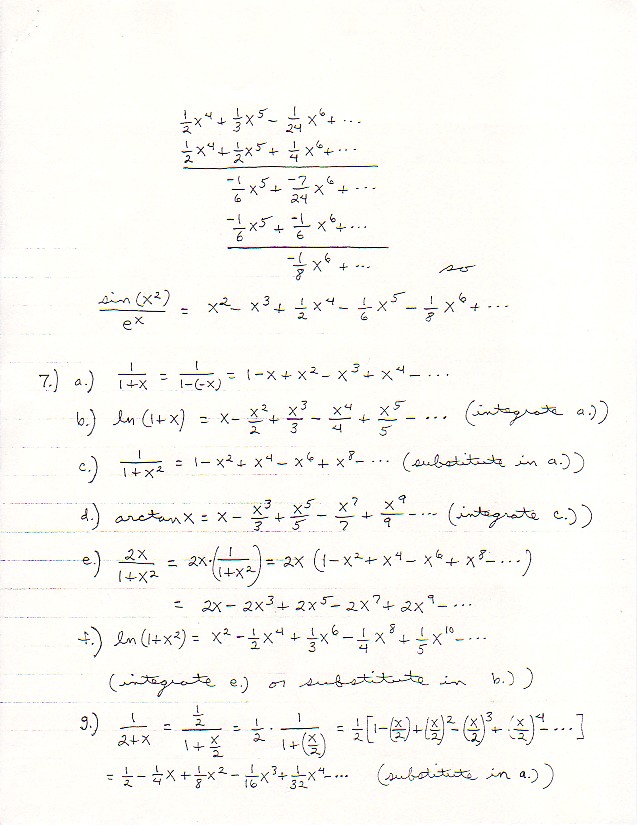 1/2 x⁴ + 1/3 x⁵ - 1/24 x⁶ + ...
1/2 x⁴ + 1/2 x⁵ + 1/4 x⁶ + ...
-1/6 x⁵ + -7/24 x⁶ + ...
-1/6 x⁵ + -1/6 x⁶ + ...
-1/8 x⁶ + ... so
sin(x²)/eˣ = x² - x³ + 1/2 x⁴ - 1/6 x⁵ - 1/8 x⁶ + ...
7.) a.) 1/(1+x) = 1/(1-(-x)) = 1-x+x²-x³+x⁴-...
b.) ln(1+x) = x - x²/2 + x³/3 - x⁴/4 + x⁵/5 - ... (integrate a.))
c.) 1/(1+x²) = 1-x²+x⁴-x⁶+x⁸-... (substitute in a.))
d.) arctan x = x - x³/3 + x⁵/5 - x⁷/7 + x⁹/9 - ... (integrate c.))
e.) 2x/(1+x²) = 2x·(1/(1+x²)) = 2x (1-x²+x⁴-x⁶+x⁸-...)
= 2x-2x³+2x⁵-2x⁷+2x⁹-...
f.) ln(1+x²) = x² - 1/2 x⁴ + 1/3 x⁶ - 1/4 x⁸ + 1/5 x¹⁰ - ...
(integrate e.) or substitute in b.))
g.) 1/(2+x) = (1/2)/(1+x/2) = 1/2 · 1/(1+(x/2)) = 1/2 [1-(x/2)+(x/2)²-(x/2)³+(x/2)⁴-...]
= 1/2 - 1/4 x + 1/8 x² - 1/16 x³ + 1/32 x⁴ - ... (substitute in a.))